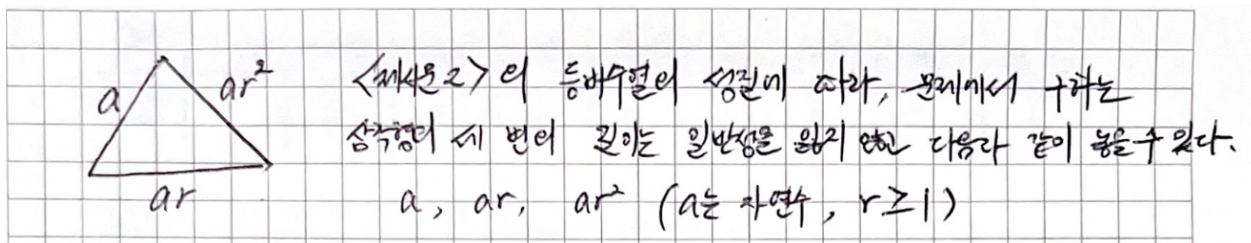 a
ar²
ar
<제시문2>의 등비수열의 성질에 따라, 문제에서 구하는
삼각형의 세 변의 길이는 일반성을 잃지 않고 다음과 같이 놓을 수 있다.
a, ar, ar² (a는 자연수, r≥1)